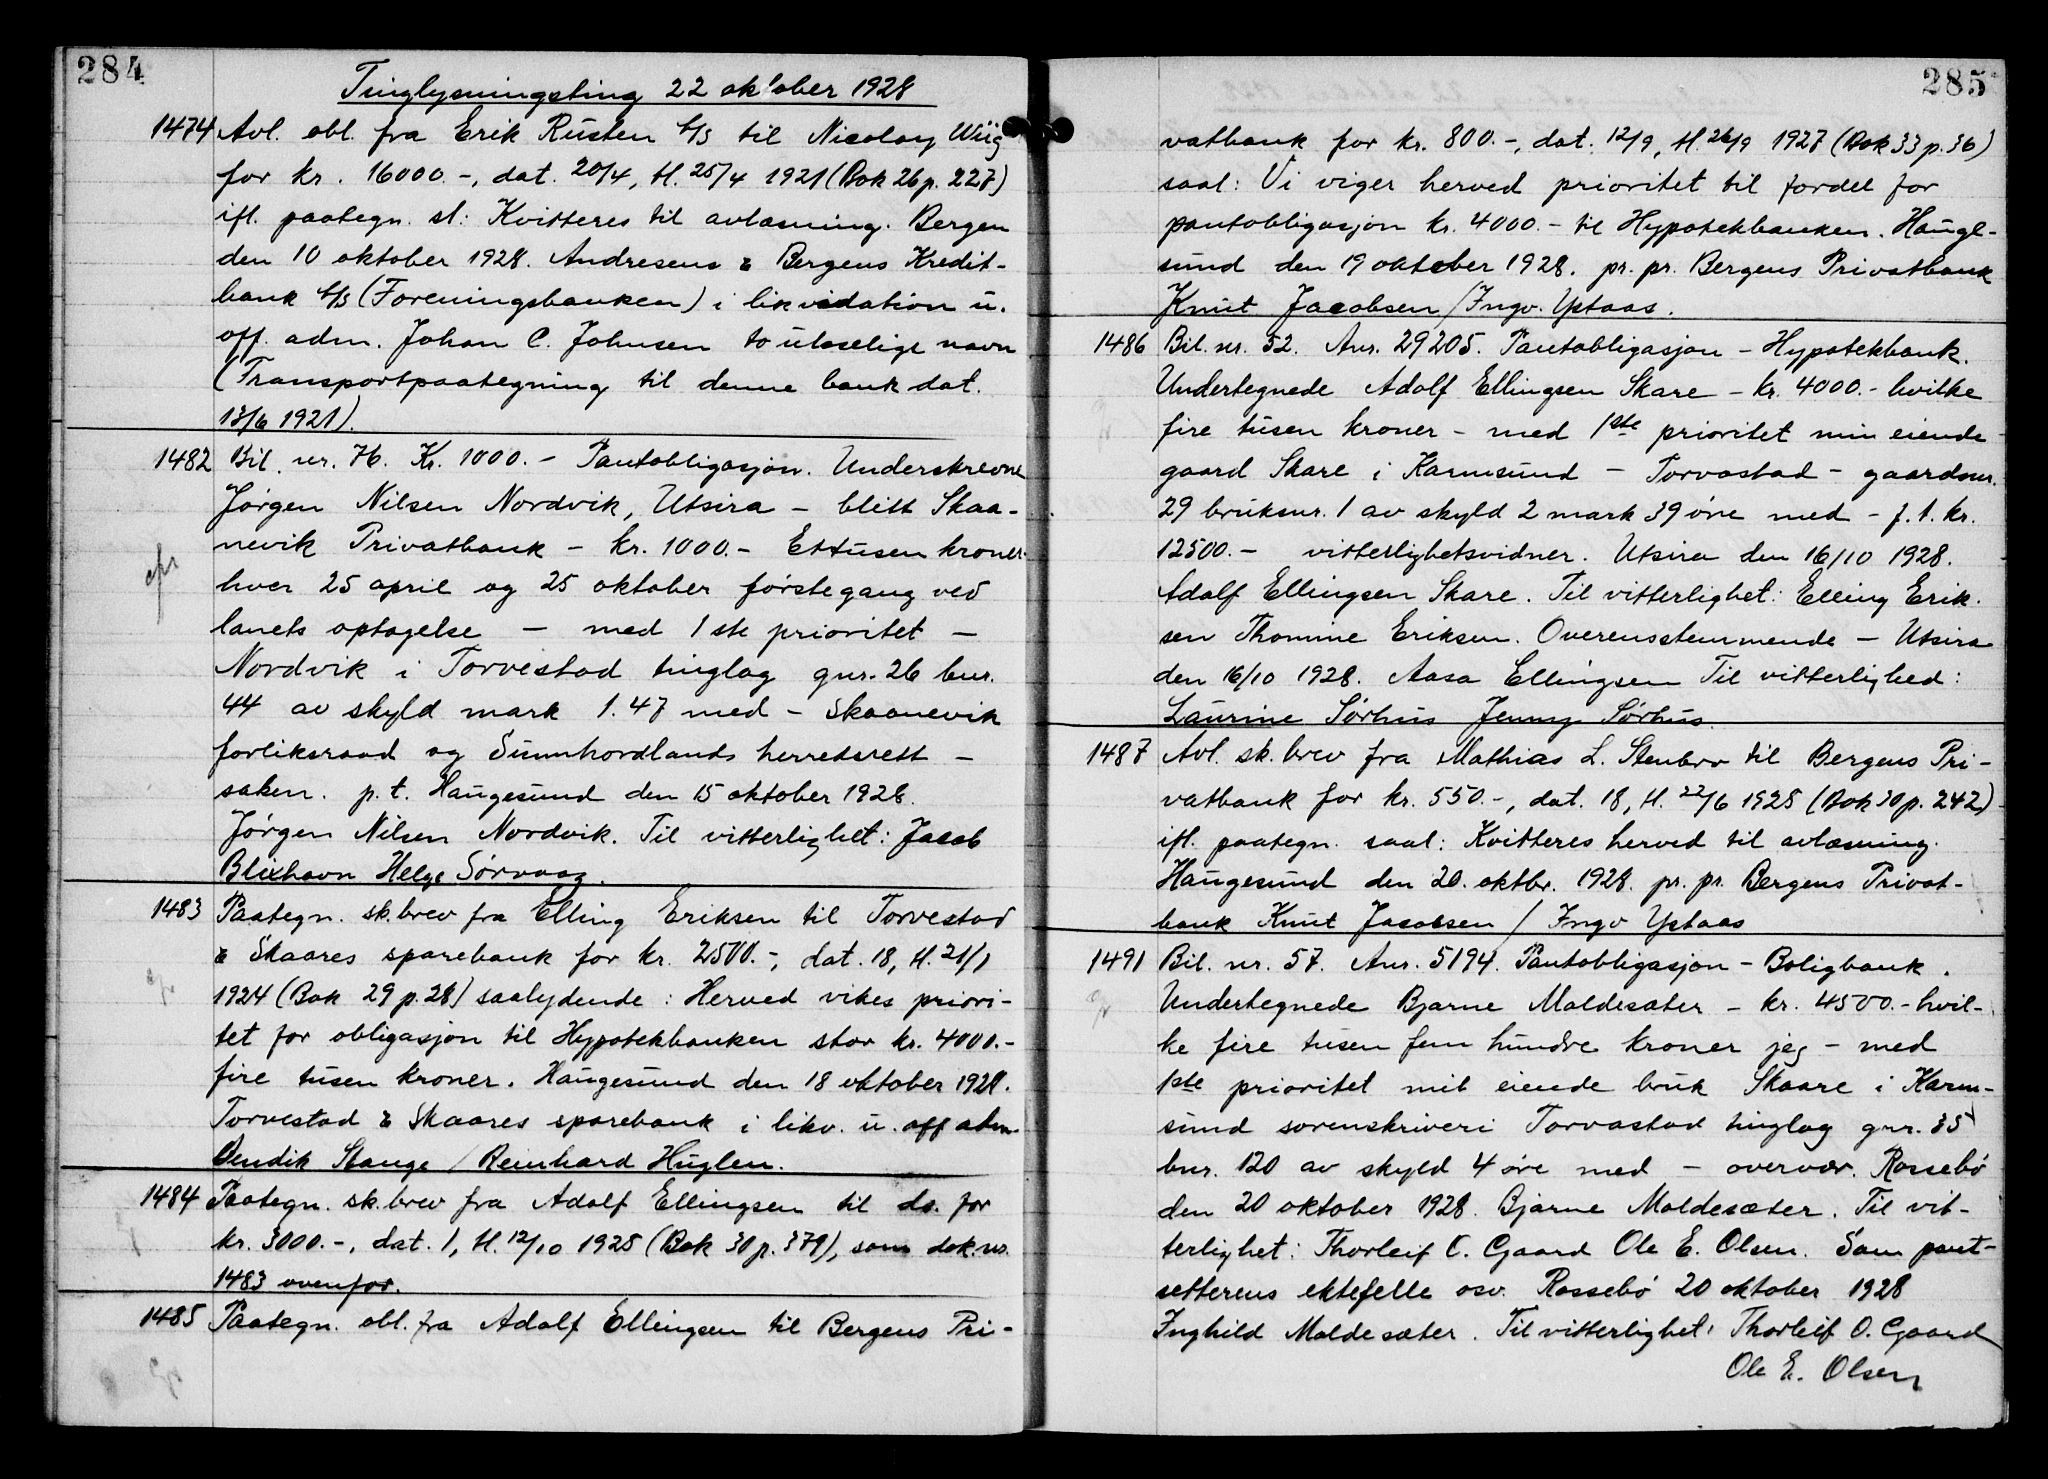 284
Tinglysningsting 22 oktober 1928
1474 Avl. obl. fra Erik Rusten A/S til Nicolay Wiig
for kr. 16000.-, dat. 20/4, tl. 25/4 1921 (Bok 26 p. 227)
ifl. paategn. sl: Kvitteres til avlæsning. Bergen
den 10 oktober 1928. Andresens & Bergens Kredit-
bank A/S (Foreningsbanken) i likvidation u.
off. adm. Johan C. Johnsen to uleselige navn
(Transportpaategning til denne bank dat.
13/6 1921).
1482 Bil. nr. 76. Kr. 1000.- Pantobligasjon. Underskrevne
Jørgen Nilsen Nordvik, Utsira - blitt Skaa-
nevik Privatbank - kr. 1000.- Ettusen kroner-
hver 25 april og 25 oktober førstegang ved
lanets optagelse - med 1 ste prioritet -
Nordvik i Torvestad tinglag gnr. 26 bnr.
44 av skyld mark 1.47 med - Skaanevik
forliksraad og Sunnhordlands herredsrett -
saken. p. t. Haugesund den 15 oktober 1928.
Jørgen Nilsen Nordvik. Til vitterlighet: Jacob
Blixhavn Helge Sørvaag.
1483 Paategn. sk.brev fra Elling Eriksen til Torvestad
& Skaares sparebank for kr. 2500.-, dat. 18, tl. 21/1
1924 (Bok 29 p. 28) saalydende: Herved vikes priori-
tet for obligasjon til Hypotekbanken stor kr. 4000.-
fire tusen kroner. Haugesund den 18 oktober 1928.
Torvestad & Skaares sparebank i likv. u. off adm.
Bendik Stange / Reinhard Huglen.
1484 Paategn. sk.brev fra Adolf Ellingsen til do. for
kr. 3000.-, dat. 1, tl. 12/10 1925 (Bok 30 p. 379), som dok.nr.
1483 ovenfor.
1485 Paategn. obl. fra Adolf Ellingsen til Bergens Pri-
285
vatbank for kr. 800.-, dat. 12/9, tl. 26/9 1927 (Bok 33 p. 36)
saal: Vi viger herved prioritet til fordel for
pantobligasjon kr. 4000.- til Hypotekbanken. Hauge-
sund den 19 oktober 1928. pr. pr. Bergens Privatbank
Knut Jacobsen / Ingv. Ystaas.
1486 Bil. nr. 52. Anr. 29205. Pantobligasjon - Hypotekbank.
Undertegnede Adolf Ellingsen Skare - kr. 4000.- hvilke
fire tusen kroner - med 1ste prioritet min eiende
gaard Skare i Karmsund - Torvastad - gaardsnr.
29 bruksnr. 1 av skyld 2 mark 39 øre med - f. t. kr.
12500.- vitterlighetsvidner. Utsira den 16/10 1928.
Adolf Ellingsen Skare. Til vitterlighet: Elling Erik-
sen Thomine Eriksen. Overensstemmende - Utsira
den 16/10 1928. Aasa Ellingsen Til vitterlighed:
Laurine Sørhus Jenny Sørhus.
1487 Avl. sk.brev fra Mathias L. Stenbro til Bergens Pri-
vatbank for kr. 550.-, dat. 18, tl. 22/6 1925 (Bok 30 p. 242)
ifl. paategn. saal: Kvitteres herved til avlæsning.
Haugesund den 20. oktbr. 1928. pr. pr. Bergens Privat-
bank Knut Jacobsen / Ingv Ystaas
1491 Bil. nr. 57. Anr. 5194. Pantobligasjon - Boligbank.
Undertegnede Bjarne Moldesæter - kr. 4500.- hvil-
ke fire tusen fem hundre kroner jeg - med
1ste prioritet mit eiende bruk Skaare i Karm-
sund sorenskriveri Torvastad tinglag gnr. 35
bnr. 120 av skyld 4 øre med - overvær. Rossebø
den 20 oktober 1928. Bjarne Moldesæter. Til vit-
terlighet: Thorleif O. Gaard Ole E. Olsen. Som pant-
setterens ektefelle osv. Rossebø 20 oktober 1928
Inghild Moldesæter. Til vitterlighet: Thorleif O. Gaard
Ole E. Olsen